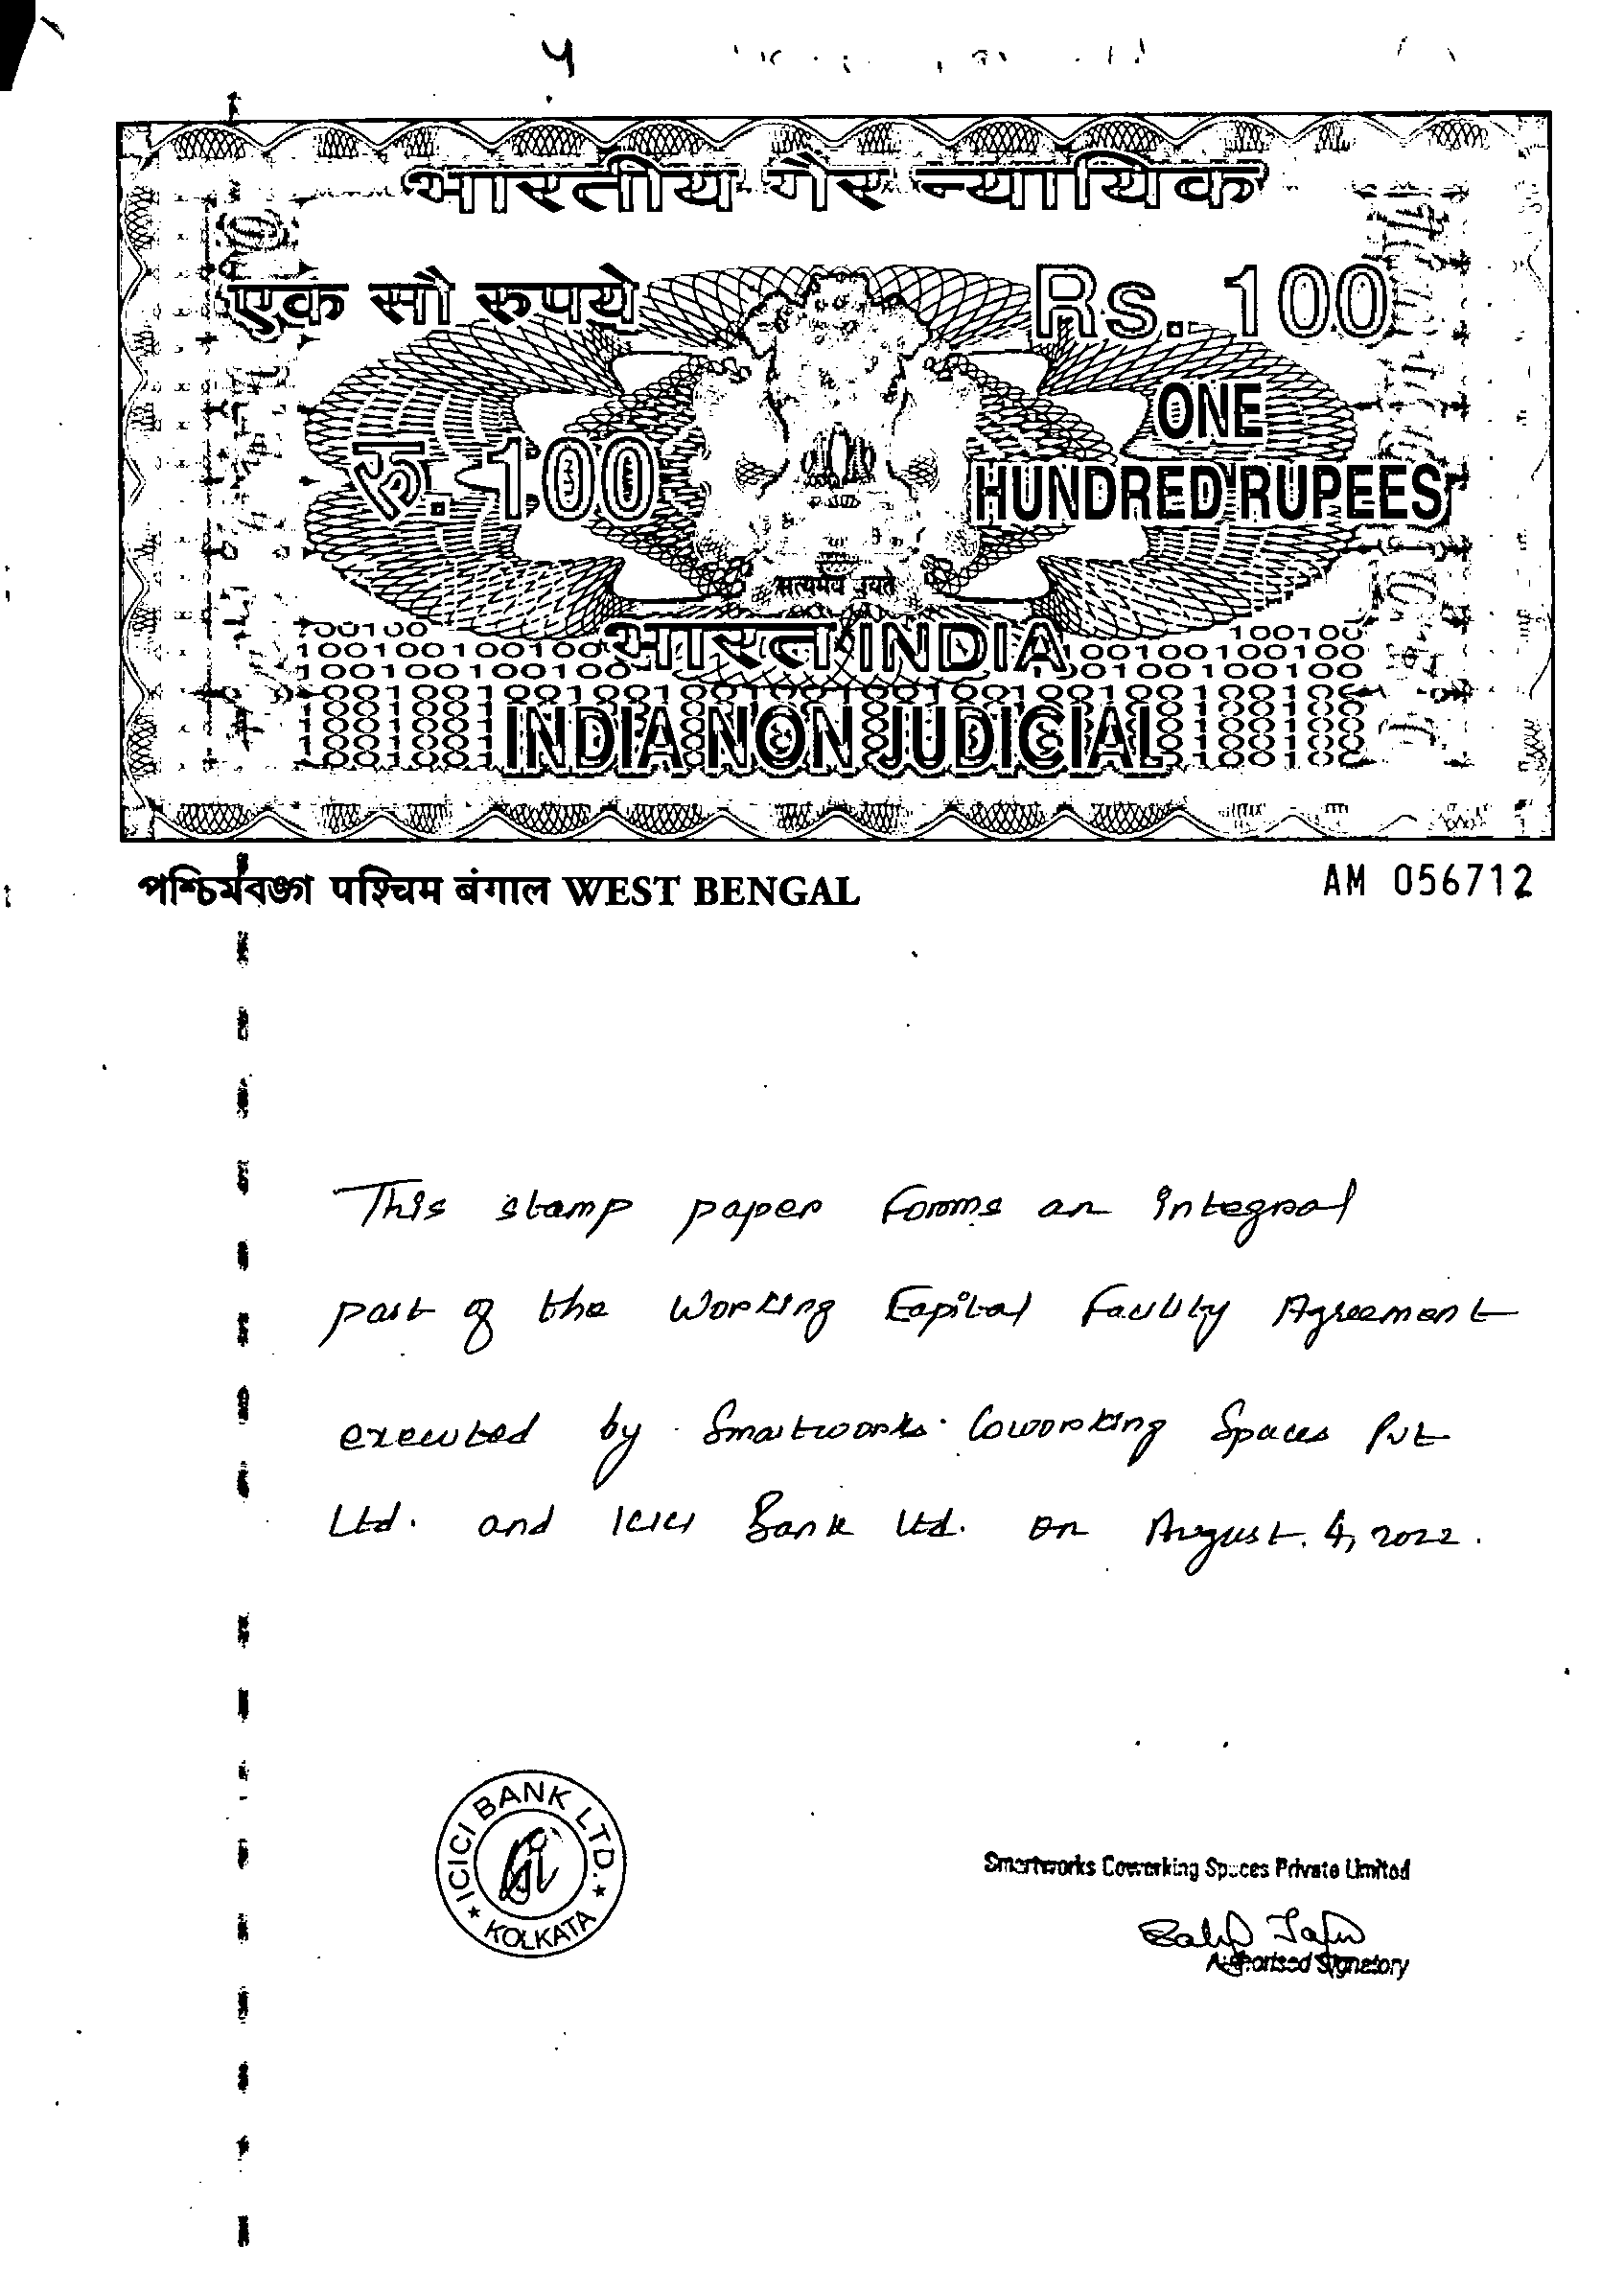 भारतीय गैर न्यायिक
एक सौ रुपये
Rs. 100
रु. 100
ONE
HUNDRED RUPEES
सत्यमेव जयते
भारत INDIA
INDIA NON JUDICIAL
পশ্চিমবঙ্গ पश्चिम बंगाल WEST BENGAL
AM 056712
This stamp paper forms an integral
part of the Working Capital Facility Agreement
executed by Smartworks Coworking Spaces Pvt
Ltd. and ICICI Bank Ltd. on August 4, 2022.
ICICI BANK LTD.
KOLKATA
Smartworks Coworking Spaces Private Limited
Authorised Signatory